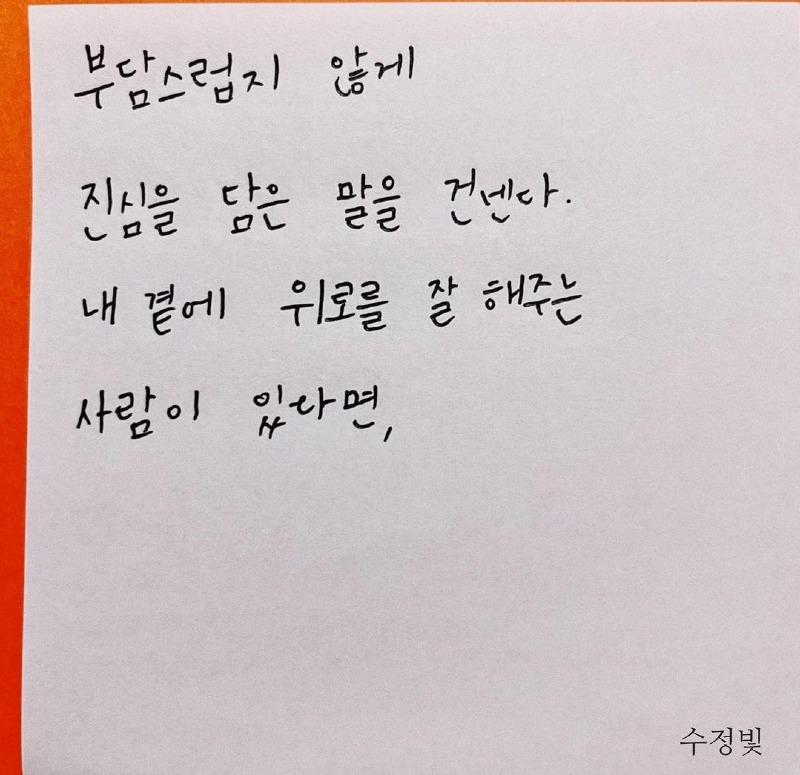 부담스럽지 않게
진심을 담은 말을 건넨다.
내 곁에 위로를 잘 해주는
사람이 있다면,
수정빛